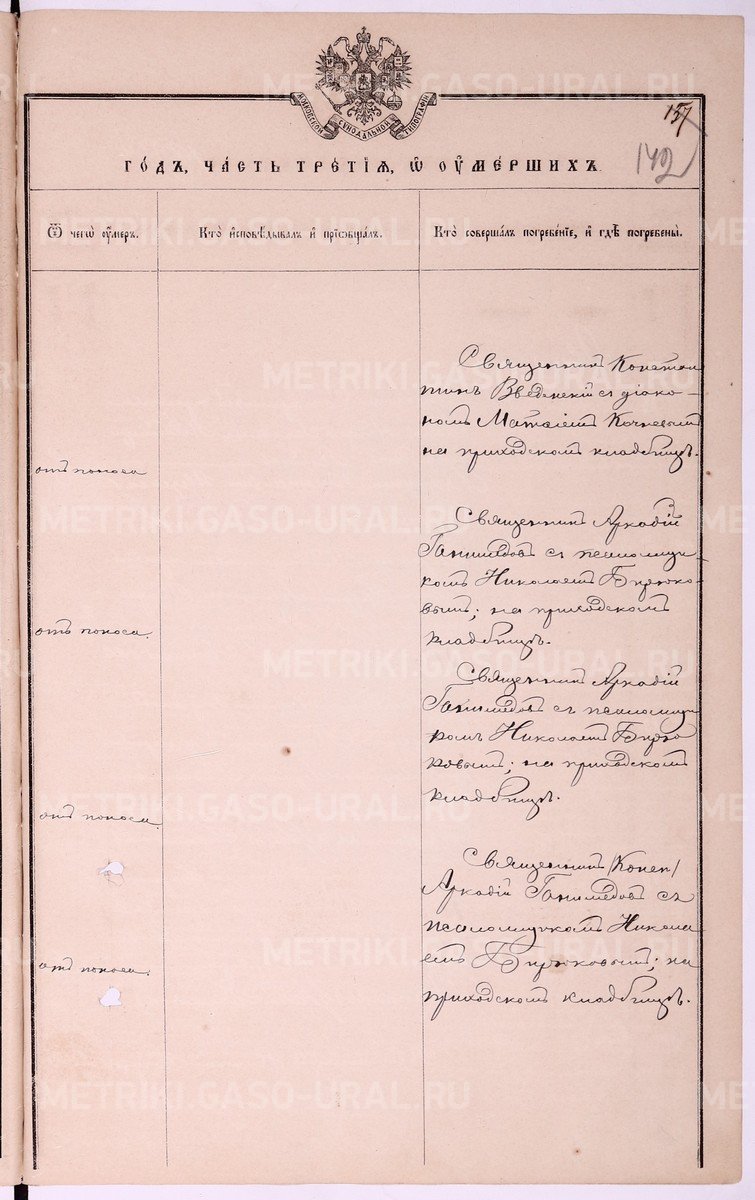 МОСКОВСКОЙ СѴНОДАЛЬНОЙ ТИПОГРАФІИ
157
142
ГО́ДЪ, ЧА́СТЬ ТРЕ́ТІѦ, Ѡ ОУМЕ́РШИХЪ.
Ѿ чегѡ̀ оу́меръ.
Кто̀ и҆сповѣ́дывалъ и҆ приѡбща́лъ.
Кто̀ соверша́лъ погребе́ніе, и҆ гдѣ̀ погребены̀.
Священникъ Констан
тинъ Введенскій съ діако-
номъ Матѳіемъ Кочневымъ
на приходскомъ кладбищѣ.
отъ поноса
Священникъ Аркадій
Ганимедовъ съ псаломщи-
комъ Николаемъ Бирюко-
вымъ; на приходскомъ
кладбищѣ.
отъ поноса.
Священникъ Аркадій
Ганимедовъ съ псаломщи
комъ Николаемъ Бирю
ковымъ; на приходскомъ
кладбищѣ.
отъ поноса.
Священникъ
Аркадій Ганимедовъ съ
псаломщикомъ Никола
емъ Бирюковымъ; на
приходскомъ кладбищѣ.
отъ поноса.
METRIKI.GASO-URAL.RU